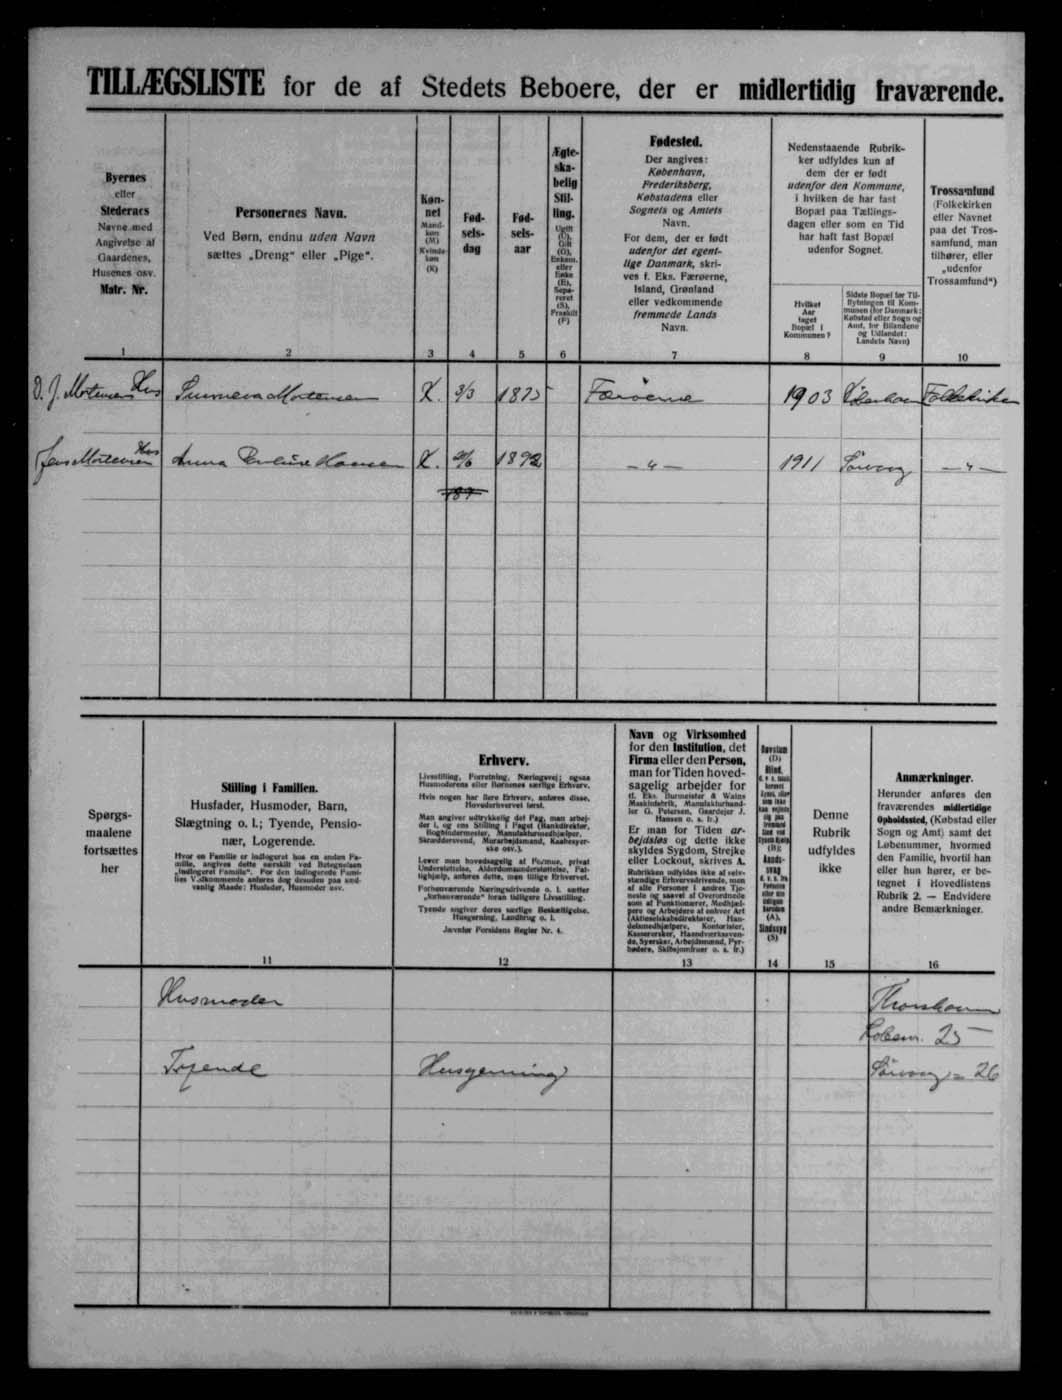 TILLÆGSLISTE for de af Stedets Beboere, der er midlertidig fraværende.
Byernes
eller
Stedernes
Navne med
Angivelse af
Gaardenes,
Husenes osv.
Matr. Nr.
1
Personernes Navn.
Ved Børn, endnu uden Navn
sættes „Dreng“ eller „Pige“.
2
Køn-
net
Mand-
køn
(M)
Kvinde-
køn
(K)
3
Fød-
sels-
dag
4
Fød-
sels-
aar
5
Ægte-
ska-
belig
Stil-
ling.
Ugift
(U),
Gift
(G),
Enkem.
eller
Enke
(E),
Sepa-
reret
(S),
Fraskilt
(F)
6
Fødested.
Der angives:
København,
Frederiksberg,
Købstadens eller
Sognets og Amtets
Navn.
For dem, der er født
udenfor det egent-
lige Danmark, skri-
ves f. Eks. Færøerne,
Island, Grønland
eller vedkommende
fremmede Lands
Navn.
7
Nedenstaaende Rubrik-
ker udfyldes kun af
dem der er født
udenfor den Kommune,
i hvilken de har fast
Bopæl paa Tællings-
dagen eller som en Tid
har haft fast Bopæl
udenfor Sognet.
Hvilket
Aar
taget
Bopæl i
Kommunen?
8
Sidste Bopæl før Til-
flytningen til Kom-
munen (for Danmark:
Købstad eller Sogn og
Amt, for Bilandene
og Udlandet:
Landets Navn)
9
Trossamfund
(Folkekirken
eller Navnet
paa det Tros-
samfund, man
tilhører, eller
„udenfor
Trossamfund“)
10
D. J. Mortensens Hus Sunneva Mortensen K. 3/3 1875 Færøerne 1903 Folkekirken
Jens Mortensen Hus Anna Hansen K. 1892 — „ — 1911 Sørvaag — „ —
187
Spørgs-
maalene
fortsættes
her
Stilling i Familien.
Husfader, Husmoder, Barn,
Slægtning o. l.; Tyende, Pensio-
nær, Logerende.
Hvor en Familie er indlogeret hos en anden Fa-
milie, angives dette særskilt ved Betegnelsen
„indlogeret Familie“. For den indlogerede Fami-
lies Vedkommende anføres dog desuden paa sæd-
vanlig Maade: Husfader, Husmoder osv.
11
Erhverv.
Livsstilling, Forretning, Næringsvej; ogsaa
Husmoderens eller Børnenes særlige Erhverv.
Hvis nogen har flere Erhverv, anføres disse,
Hovederhvervet først.
Man angiver udtrykkelig det Fag, man arbej-
der i, og ens Stilling i Faget (Bankdirektør,
Bogbindermester, Manufakturmedhjælper,
Skræddersvend, Murarbejdsmand, Kaabesyer-
ske osv.).
Lever man hovedsagelig af Formue, privat
Understøttelse, Alderdomsunderstøttelse, Fat-
tighjælp, anføres dette, men tillige Erhvervet.
Forhenværende Næringsdrivende o. l. sætter
„forhenværende“ foran tidligere Livsstilling.
Tyende angiver deres særlige Beskæftigelse,
Husgerning, Landbrug o. l.
Jævnfør Forsidens Regler Nr. 4.
12
Navn og Virksomhed
for den Institution, det
Firma eller den Person,
man for Tiden hoved-
sagelig arbejder for
(f. Eks. Burmeister & Wains
Maskinfabrik, Manufakturhand-
ler G. Petersen, Gaardejer J.
Hansen o. s. fr.)
Er man for Tiden ar-
bejdsløs og dette ikke
skyldes Sygdom, Strejke
eller Lockout, skrives A.
Rubrikken udfyldes ikke af selv-
stændige Erhvervsdrivende, men
af alle Personer i andres Tje-
neste og saavel af Overordnede
som af Funktionærer, Medhjæl-
pere og Arbejdere af enhver Art
(Aktieselskabsdirektører, Han-
delsmedhjælpere, Kontorister,
Kassererske, Haandværkssven-
de, Syersker, Arbejdsmænd, Fyr-
bødere, Skibsjomfruer o. s. fr.)
13
Døvstum
(D)
Blind,
(B);
Aands-
svag
(A),
Sindssyg
(S)
14
Denne
Rubrik
udfyldes
ikke
15
Anmærkninger.
Herunder anføres den
fraværendes midlertidige
Opholdssted, (Købstad eller
Sogn og Amt) samt det
Løbenummer, hvormed
den Familie, hvortil han
eller hun hører, er be-
tegnet i Hovedlistens
Rubrik 2. — Endvidere
andre Bemærkninger.
16
Husmoder Thorshavn
Løbenr. 25
Tyende Husgerning Sørvaag = 26